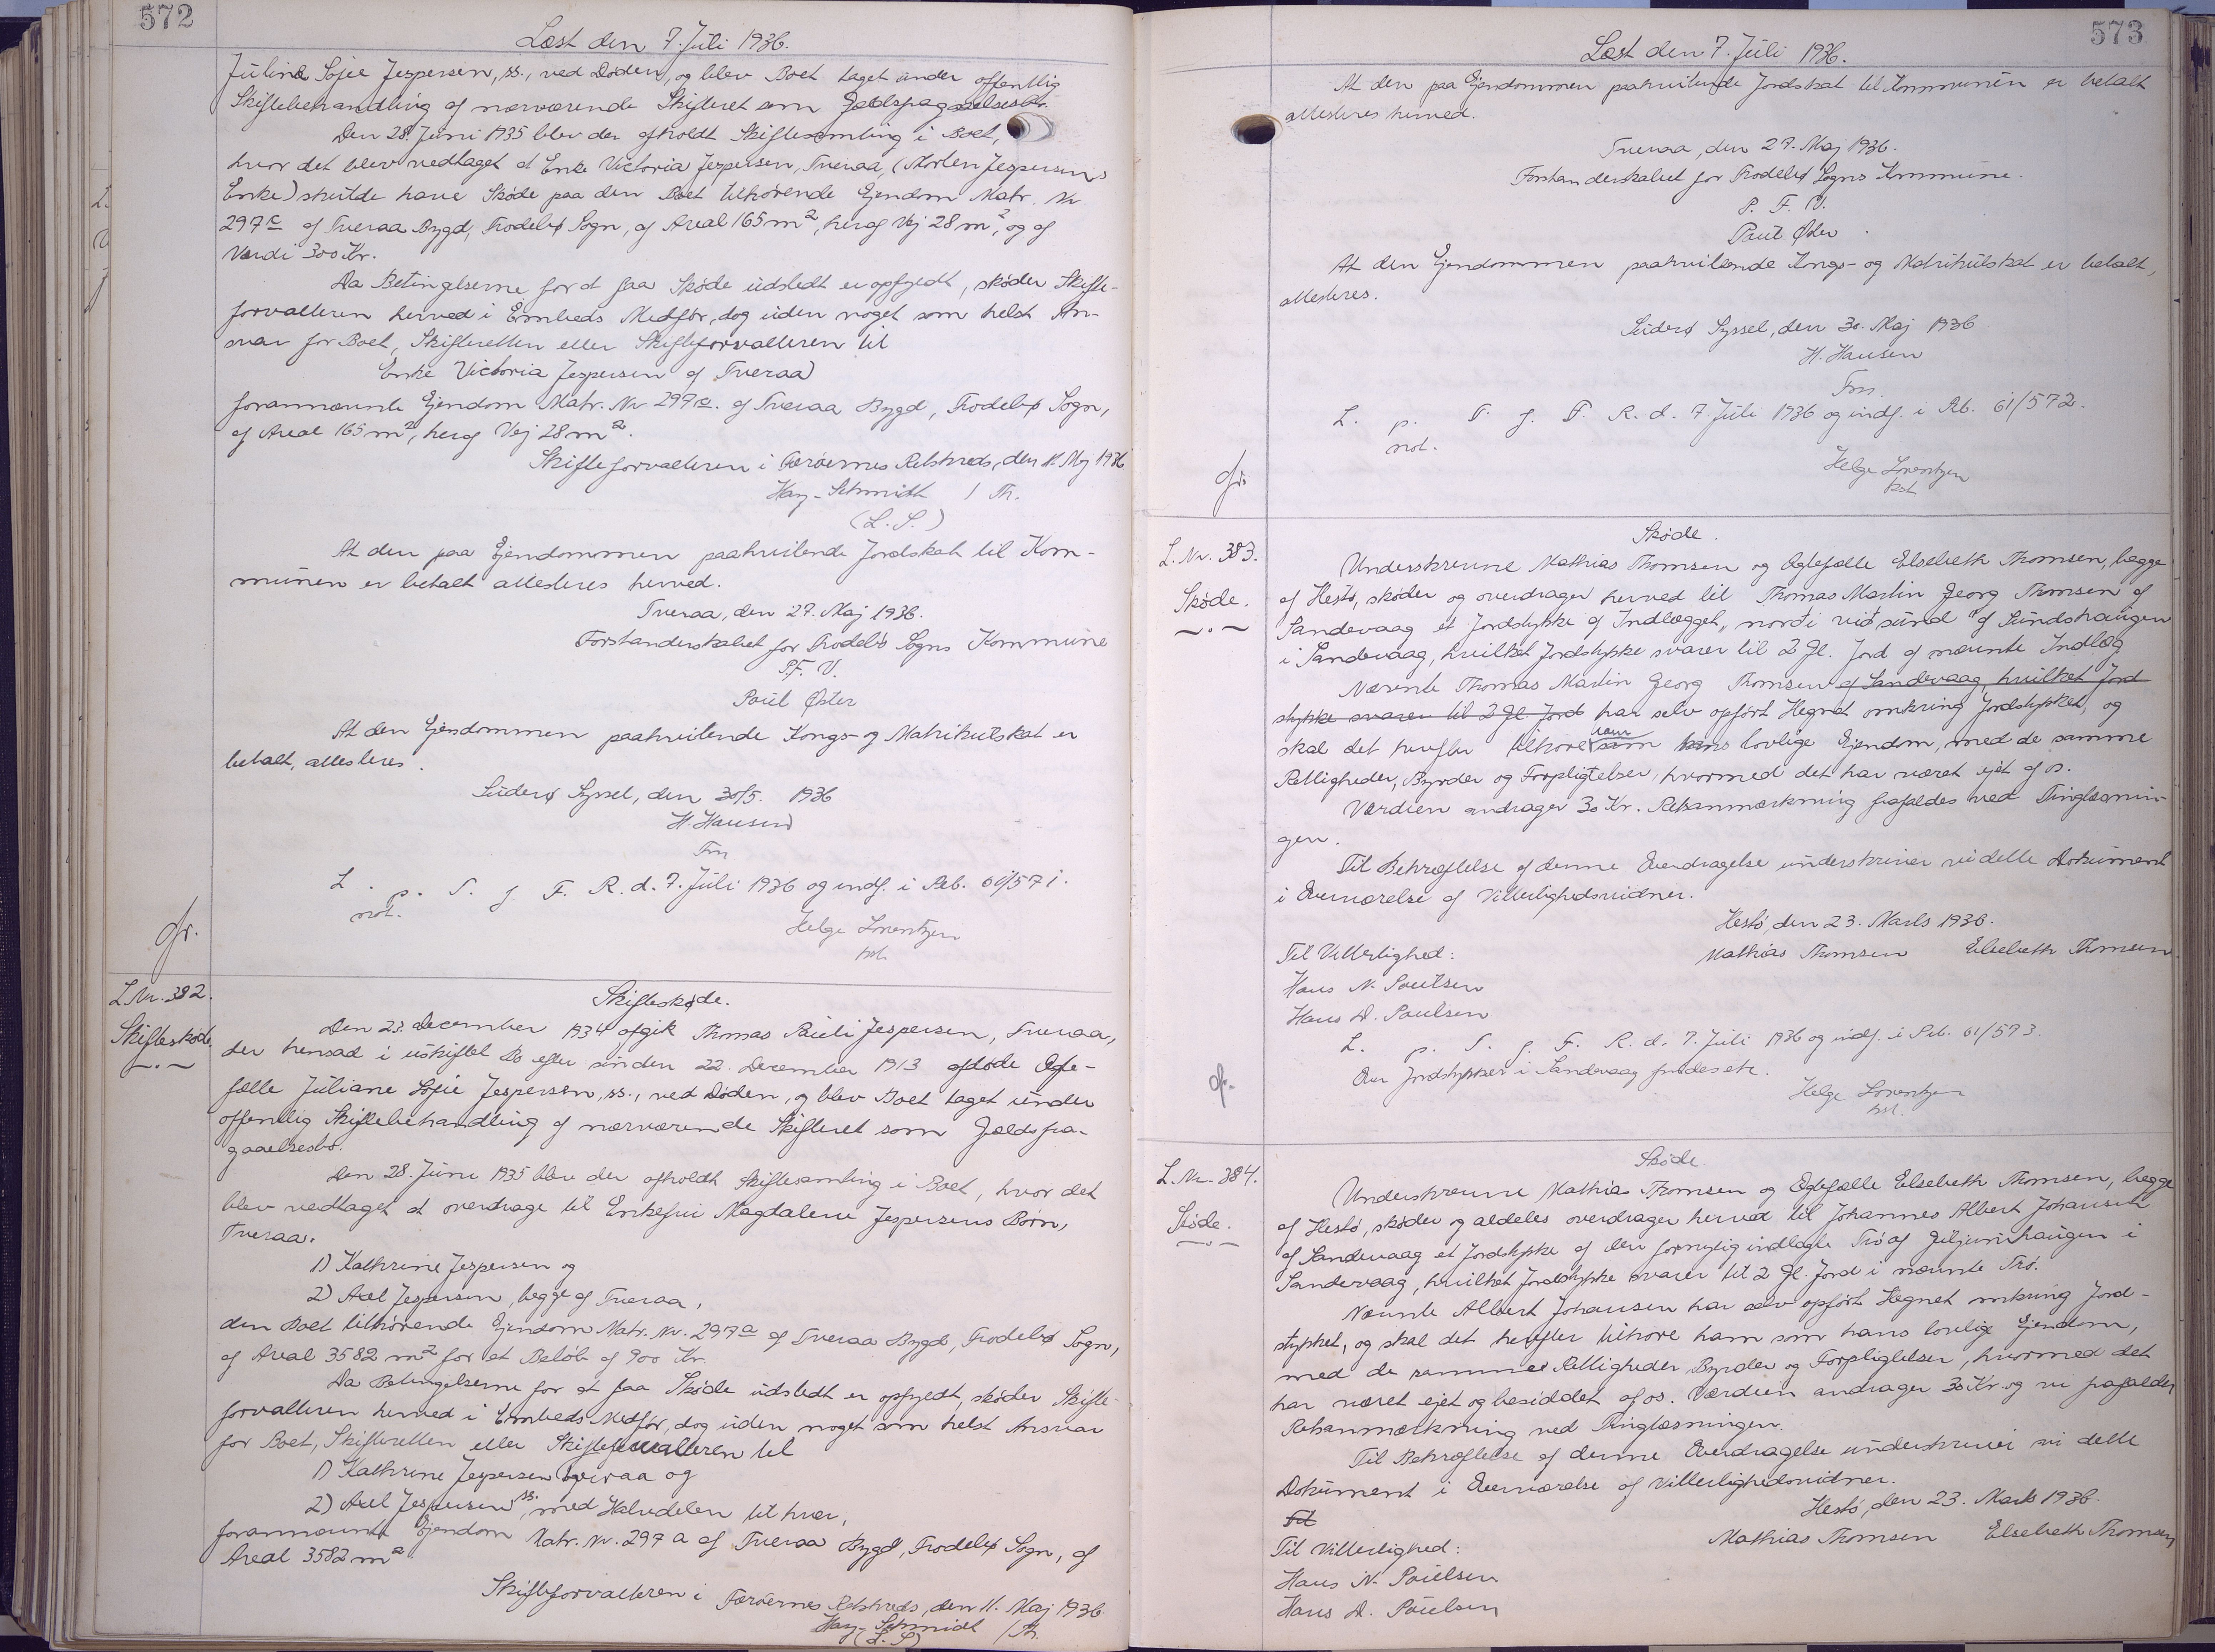 572
Læst den 7. Juli 1936.
Juline Sofie Jespersen, ss., ved Døden, og blev Boet taget under offentlig
Skiftebehandling af nærværende Skifteret som
Den 28. Juni 1935 blev der afholdt Skiftesamling i Boet,
hvor det blev vedtaget at Enke Victoria Jespersen, Tveraa, (Morten Jespersens
Enke) skulde have Skøde paa den Boet tilhørende Ejendom Matr. Nr
297c af Tveraa Bygd, Frodebø Sogn, af Areal 165 m², heraf Vej 28 m², og af
Værdi 300 Kr.
Da Betingelserne for at faa Skøde udstedt er opfyldt, skøder Skifte-
forvalteren herved i Embeds Medfør, dog uden noget som helst An-
svar for Boet, Skifteretten eller Skifteforvalteren til
Enke Victoria Jespersen af Tveraa
forannævnte Ejendom Matr. Nr 297c. af Tveraa Bygd, Frodebø Sogn,
af Areal 165 m², heraf Vej 28 m².
Skifteforvalteren i Færøernes Retskreds, den 11. Maj 1936
Hay-Schmidt / Th.
(L. S.)
At den paa Ejendommen paahvilende Jordskat til Kom-
munen er betalt attesteres herved.
Tveraa, den 27. Maj 1936.
Forstanderskabet for Frodebø Sogns Kommune
P. F. V.
Poul Øster
At den Ejendommen paahvilende Kongs- og Matrikulskat er
betalt, attesteres.
Suderø Syssel, den 30/5. 1936
H. Hansen
Fm
L. p. T. f. F. R. d. 7. Juli 1936 og indf. i Rb. 61/571.
not.
Helge Lorentzen
kst.
Gr.
L. Nr. 382.
Skifteskøde
Skifteskøde.
Den 23. December 1934 afgik Thomas Pauli Jespersen, Tveraa,
der hensad i uskiftet Bo efter sin den 22. December 1913 afdøde Ægte-
fælle Juliane Sofie Jespersen, ss., ved Døden, og blev Boet taget under
offentlig Skiftebehandling af nærværende Skifteret som Gældsfra-
gaaelsesbo.
Den 28. Juni 1935 blev der afholdt Skiftesamling i Boet, hvor det
blev vedtaget at overdrage til Enkefru Magdalene Jespersens Børn,
Tveraa.
1) Kathrine Jespersen og
2) Axel Jespersen, begge af Tveraa,
den Boet tilhørende Ejendom Matr. Nr. 297a af Tveraa Bygd, Frodebø Sogn,
af Areal 3582 m² for et Beløb af 900 Kr.
Da Betingelserne for at faa Skøde udstedt er opfyldt, skøder Skifte-
forvalteren herved i Embeds Medfør, dog uden noget som helst Ansvar
for Boet, Skifteretten eller Skifteforvalteren til
1) Kathrine Jespersen Tveraa og
2) Axel Jespersen ss., med Halvdelen til hver,
forannævnte Ejendom Matr. Nr. 297 a af Tveraa Bygd, Frodebø Sogn, af
Areal 3582 m².
Skifteforvalteren i Færøernes Retskreds, den 11. Maj 1936
Hay-Schmidt / Th.
(L. S)
573
Læst den 7. Juli 1936.
At den paa Ejendommen paahvilende Jordskat til Kommunen er betalt
attesteres herved.
Tveraa, den 27. Maj 1936.
Forstanderskabet for Frodebø Sogns Kommune.
P. F. V.
Poul Øster.
At den Ejendommen paahvilende Kongs- og Matrikulskat er betalt,
attesteres.
Suderø Syssel, den 30. Maj 1936
H. Hansen
Fm.
L. p. T. f. F. R. d. 7. Juli 1936 og indf. i Rb. 61/572.
not.
Helge Lorentzen
kst.
Gr.
L. Nr. 383.
Skøde.
Skøde.
Underskrevne Mathias Thomsen og Ægtefælle Elsebeth Thomsen, begge
af Hestø, skøder og overdrager herved til Thomas Martin Georg Thomsen af
Sandevaag et Jordstykke af Indlægget "norði við sund" af Sundshaugen
i Sandevaag, hvilket Jordstykke svarer til 2 Gl. Jord af nævnte Indlæg
Nævnte Thomas Martin Georg Thomsen af Sandevaag, hvilket Jord
stykke svarer til 2 Gl. Jord har selv opført Hegnet omkring Jordstykket, og
skal det herefter tilhøre ham som hans lovlige Ejendom, med de samme
Rettigheder, Byrder og Forpligtelser, hvormed det har været ejet af os.
Værdien andrager 30 Kr. Retsanmærkning frafaldes ved Tinglæsnin-
gen.
Til Bekræftelse af denne Overdragelse underskriver vi dette Dokument
i Overværelse af Vitterlighedsvidner.
Hestø, den 23. Marts 1936.
Til Vitterlighed:
Mathias Thomsen Elsebeth Thomsen
Hans N. Poulsen
Hans D. Poulsen
L. p. T. f. F. R. d. 7. Juli 1936 og indf. i Rb. 61/573.
Om Jordstykker i Sandevaag findes etc.
Helge Lorentzen
kst.
Gr.
L. Nr. 384.
Skøde.
Skøde.
Underskrevne Mathias Thomsen og Ægtefælle Elsebeth Thomsen, begge
af Hestø, skøder og aldeles overdrager herved til Johannes Albert Johansen
af Sandevaag et Jordstykke af den fornylig indlagte Trø af Giljunhaugen i
Sandevaag, hvilket Jordstykke svarer til 2 Gl. Jord i nævnte Trø.
Nævnte Albert Johansen har selv opført Hegnet omkring Jord-
stykket, og skal det herefter tilhøre ham som hans lovlige Ejendom,
med de samme Rettigheder Byrder og Forpligtelser, hvormed det
har været ejet og besiddet af os. Værdien andrager 30 Kr. og vi frafalder
Retsanmærkning ved Tinglæsningen.
Til Bekræftelse af denne Overdragelse underskriver vi dette
Dokument i Overværelse af Vitterlighedsvidner.
Til
Hestø, den 23. Marts 1936.
Til Vitterlighed:
Mathias Thomsen Elsebeth Thomsen
Hans N. Poulsen
Hans D. Poulsen